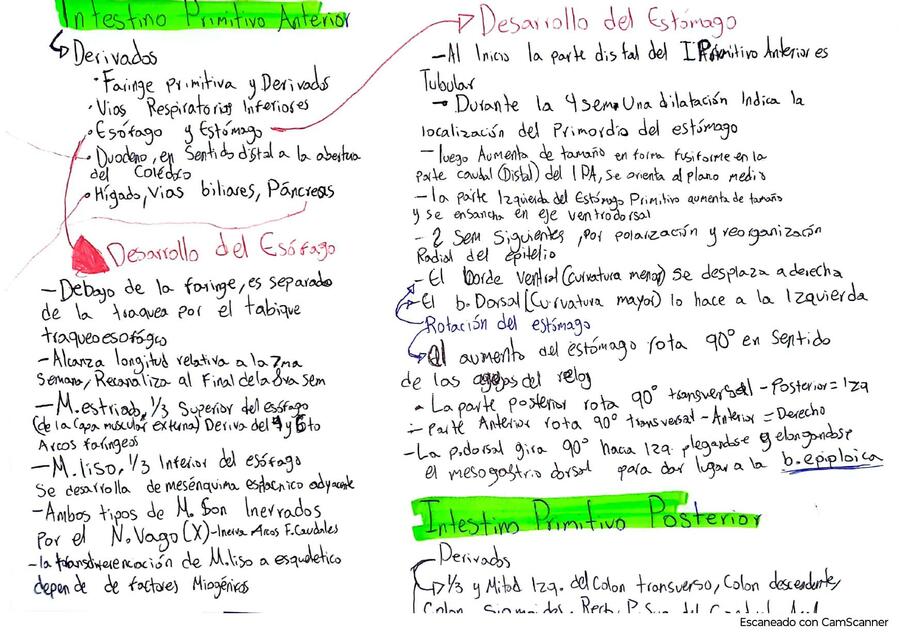 Intestino Primitivo Anterior
Derivados
· Faringe primitiva y Derivados
· Vias Respiratorias Inferiores
· Esófago y Estómago
· Duodeno, en Sentido distal a la abertura
del Colédoco
· Hígado, Vias biliares, Páncreas
Desarrollo del Esófago
- Debajo de la faringe, es separado
de la traquea por el tabique
traqueoesofágico
- Alcanza longitud relativa a la 7ma
Semana, Recanaliza al Final de la 8va sem
- M. estriado, 1/3 Superior del esófago
(de la Capa muscular externa) Deriva del 4 y 6to
Arcos faríngeos
- M. liso, 1/3 Inferior del esófago
Se desarrolla de mesénquima esplacnico adyacente
- Ambos tipos de M. Son Inervados
por el N. Vago (X) - Inerva Arcos F. Caudales
- la transdiferenciación de M. liso a esquelético
depende de factores Miogénicos
Desarrollo del Estómago
- Al Inicio la parte distal del I Primitivo Anterior es
Tubular
- Durante la 4 sem. Una dilatación Indica la
localización del Primordio del estómago
- luego Aumenta de tamaño en forma fusiforme en la
parte caudal (Distal) del IPA, Se orienta al plano medio
- la parte Izquierda del Estómago Primitivo aumenta de tamaño
y se ensancha en eje ventrodorsal
- 2 Sem Siguientes, Por polarización y reorganización
Radial del epitelio
- El borde ventral (curvatura menor) se desplaza a derecha
- El b. Dorsal (Curvatura mayor) lo hace a la Izquierda
Rotación del estómago
Al aumento del estómago rota 90° en Sentido
de las agujas del reloj
- La parte posterior rota 90° transversal - Posterior = Izq
- Parte Anterior rota 90° transversal - Anterior = Derecho
- La p. dorsal gira 90° hacia Izq. plegandose y elongandose
el mesogastrio dorsal para dar lugar a la b. epiploica
Intestino Primitivo Posterior
Derivados
1/3 y Mitad Izq. del Colon transverso, Colon descendente,
Colon Sigmoides, Recto, P. Sup. del Conducto Anal
Escaneado con CamScanner